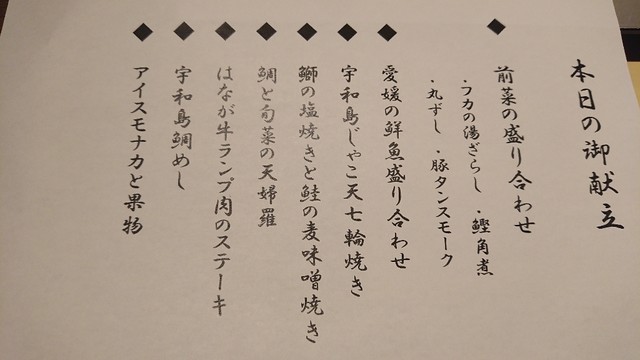 本日の御献立
◆前菜の盛り合わせ
・フカの湯ざらし ・鰹角煮
・丸ずし ・豚タンスモーク
◆愛媛の鮮魚盛り合わせ
◆宇和島じゃこ天七輪焼き
◆鰤の塩焼きと鮭の麦味噌焼き
◆鯛と旬菜の天婦羅
◆はなが牛ランプ肉のステーキ
◆宇和島鯛めし
◆アイスモナカと果物